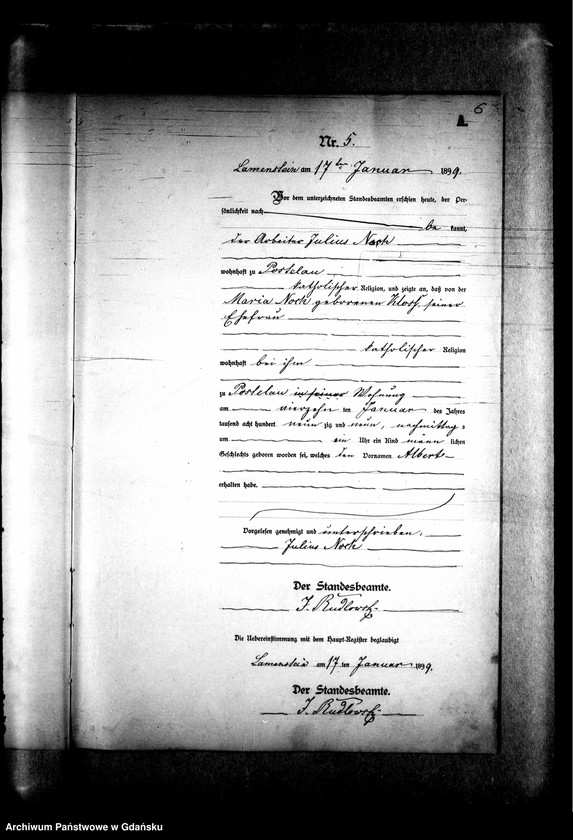 6
A.
Nr. 5.
Lamenstein am 17ten Januar 1899.
Vor dem unterzeichneten Standesbeamten erschien heute, der Per-
sönlichkeit nach
be kannt,
der Arbeiter Julius Nock
wohnhaft zu Postelau
katholischer Religion, und zeigte an, daß von der
Maria Nock geborenen Kloss, seiner
Ehefrau
katholischer Religion
wohnhaft bei ihm
zu Postelau in seiner Wohnung
am vierzehn ten Januar des Jahres
tausend acht hundert neun zig und neun, nachmittag s
um ein Uhr ein Kind männ lichen
Geschlechts geboren worden sei, welches den Vornamen Albert
erhalten habe.
Vorgelesen genehmigt und unterschrieben.
Julius Nock
Der Standesbeamte.
J. Rudlowski
Die Uebereinstimmung mit dem Haupt-Register beglaubigt
Lamenstein am 17 ten Januar 1899.
Der Standesbeamte.
J. Rudlowski
Archiwum Państwowe w Gdańsku